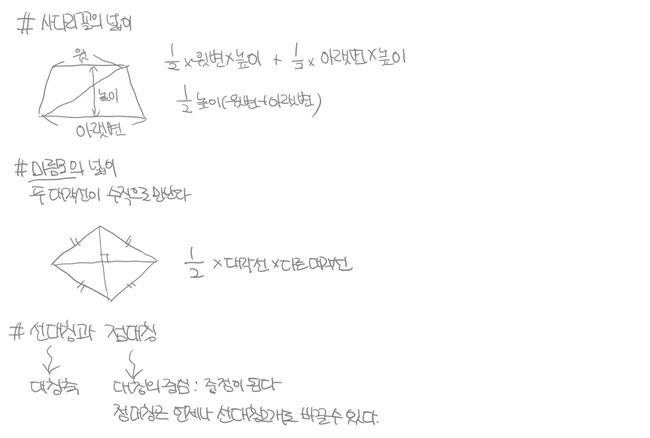 # 사다리꼴의 넓이
윗변
높이
아랫변
1/2 × 윗변 × 높이 + 1/2 × 아랫변 × 높이
1/2 높이(윗변+아랫변)
# 마름모의 넓이
두 대각선이 수직으로 만난다
1/2 × 대각선 × 다른 대각선
# 선대칭과 점대칭
대칭축
대칭의 중심 : 중점이 된다
점대칭은 언제나 선대칭2개로 바꿀수 있다.